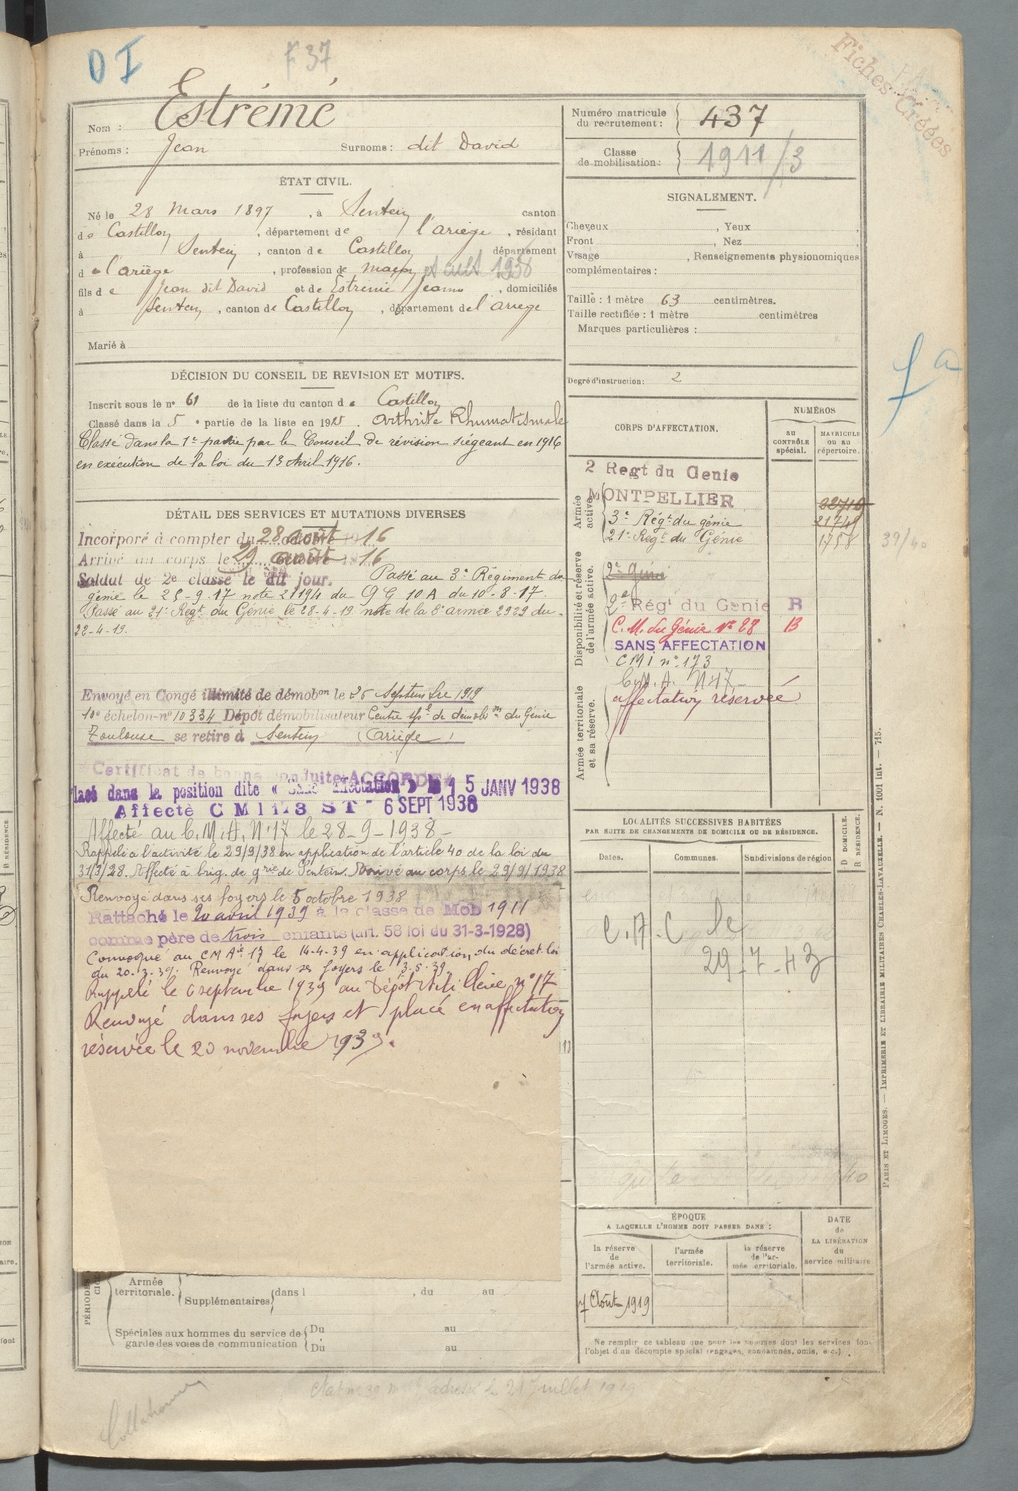 D I
F 37
Fiches Créées
Nom : Estrémé
Prénoms : Jean Surnoms : dit David
Numéro matricule du recrutement : 437
Classe de mobilisation : 1911/3
ÉTAT CIVIL.
Né le 28 Mars 1897, à Sentein canton
de Castillon, département de l'ariège, résidant
à Sentein, canton de Castillon département
d e l'ariège, profession de maçon
fils d e Jean dit David et de Estremé Jeanne, domiciliés
à Sentein, canton de Castillon, département de l'ariège
Marié à
SIGNALEMENT.
Cheveux , Yeux
Front , Nez
Visage , Renseignements physionomiques
complémentaires :
Taille : 1 mètre 63 centimètres.
Taille rectifiée : 1 mètre centimètres
Marques particulières :
Degré d'instruction : 2
DÉCISION DU CONSEIL DE REVISION ET MOTIFS.
Inscrit sous le nº 61 de la liste du canton d e Castillon
Classé dans la 5 e partie de la liste en 1915. arthrite Rhumatismale
Classé dans la 1e partie par le Conseil de révision siégeant en 1916
en exécution de la loi du 13 Avril 1916.
DÉTAIL DES SERVICES ET MUTATIONS DIVERSES
Incorporé à compter du 28 août 16
Arrivé au corps le 29 août 16
Soldat de 2e classe le dit jour. Passé au 3e Régiment de
génie le 25-9-17 note 21194 du G Q G 10 A du 10-8-17.
Passé au 21e Regt du Génie le 28-4-19 note de la 8e armée 2929 du
22-4-19.
Envoyé en Congé illimité de démobon le 25 Septembre 1919
10e échelon-nº 10334 Dépôt démobilisateur Centre spal de démobon du Génie
Toulouse se retire à Sentein (Ariège)
Certificat de bonne conduite ACCORDÉ
lacé dans la position dite « Sans Affectation » 15 JANV 1938
Affecté C M I 173 S T - 6 SEPT 1938
Affecté au C.M.A. Nº17 le 28-9-1938-
Rappelé à l'activité le 29/9/38 en application de l'article 40 de la loi du
31/3/28. Affecté à brig. de grie de Sentein. Arrivé au corps le 29/9/1938
Renvoyé dans ses foyers le 5 octobre 1938
Rattaché le 20 avril 1939 à la classe de Mob 1911
comme père de trois enfants (art. 58 loi du 31-3-1928)
Convoqué au CM Aie 17 le 14-4-39 en application du décret-loi
du 20-3-39. Renvoyé dans ses foyers le 3-5-39.
Rappelé le 6 septembre 1939 au Dépôt Artillerie nº 17
Renvoyé dans ses foyers et placé en affectation
réservée le 20 novembre 1939.
CORPS D'AFFECTATION.
NUMÉROS
au CONTRÔLE spécial.
MATRICULE ou au répertoire.
Armée active.
2 Regt du Genie
MONTPELLIER
3e Régt du génie 21749
21e Regt du Génie 1758
39/40
Disponibilité et réserve de l'armée active.
2e Génie
2e Régt du Genie R
C. M. du Génie Nº 28 B
SANS AFFECTATION
C M I nº 173
Armée territoriale et sa réserve.
C.M.A. Nº17-
affectation réservée
LOCALITÉS SUCCESSIVES HABITÉES
PAR SUITE DE CHANGEMENTS DE DOMICILE OU DE RÉSIDENCE.
D DOMICILE.
R RÉSIDENCE.
Dates.
Communes.
Subdivisions de région
29-7-43
ÉPOQUE
A LAQUELLE L'HOMME DOIT PASSER DANS :
DATE de LA LIBÉRATION du service militaire
la réserve de l'armée active.
l'armée territoriale.
la réserve de l'armée territoriale.
Août 1919
Ne remplir ce tableau que pour les hommes dont les services font
l'objet d'un décompte spécial (engagés, condamnés, omis, etc.)
Armée territoriale.
Supplémentaires dans l , du au
Spéciales aux hommes du service de garde des voies de communication
Du au
Du au
PARIS ET LIMOGES. — IMPRIMERIE ET LIBRAIRIE MILITAIRES CHARLES-LAVAUZELLE. — N. 1001 int. — 715.